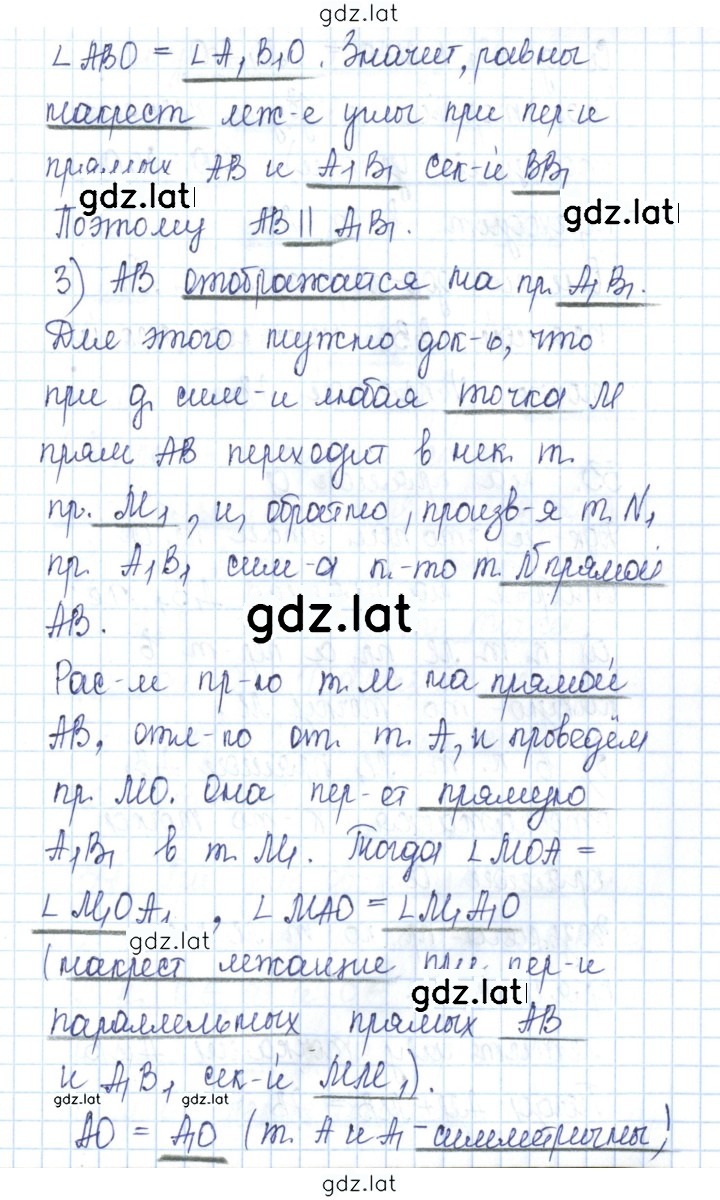 gdz.lat
∠ABO = ∠A₁B₁O. Значит, равны
накрест леж-е углы при пер-и
прямых AB и A₁B₁ сек-й BB₁
gdz.lat
gdz.lat
Поэтому AB || A₁B₁.
3) AB отображается на пр. A₁B₁.
Для этого нужно док-ь, что
при д. сим-и любая точка M
прям AB переходит в нек. т.
пр. M₁, и, обратно, произв-я т. N₁
пр. A₁B₁ сим-а к.-то т. N прямой
AB.
gdz.lat
Рас-м пр-ю т. M на прямой
AB, отл-ю от. т. A, и проведём
пр. MO. Она пер-ет прямую
A₁B₁ в т. M₁. Тогда ∠MOA =
∠M₁OA₁, ∠MAO = ∠M₁A₁O
gdz.lat
(накрест лежащие при пер-и
gdz.lat
параллельных прямых AB
и A₁B₁ сек-й MM₁).
gdz.lat
gdz.lat
AO = A₁O (т. A и A₁ - симметричны)
gdz.lat